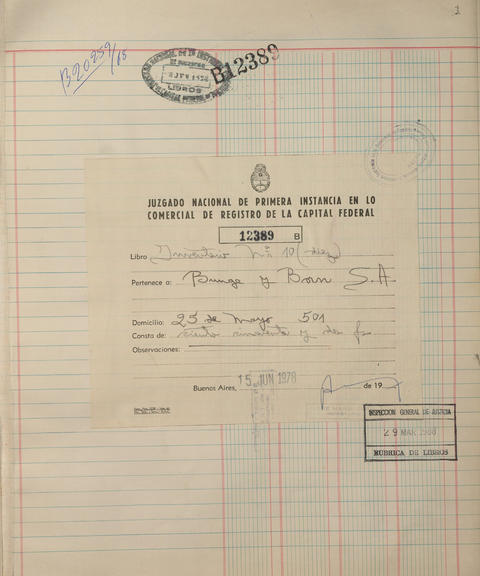 1
B20259/68
LIBROS
B12389
JUZGADO NACIONAL DE PRIMERA INSTANCIA EN LO
COMERCIAL DE REGISTRO DE LA CAPITAL FEDERAL
12389 B
Libro Inventario Nº 10 (diez)
Pertenece a: Bunge y Born S.A.
Domicilio: 25 de Mayo 501
Consta de: ciento cincuenta y dos fs
Observaciones:
Buenos Aires, 15 JUN 1978 de 19
INSPECCION GENERAL DE JUSTICIA
29 MAR
RUBRICA DE LIBROS